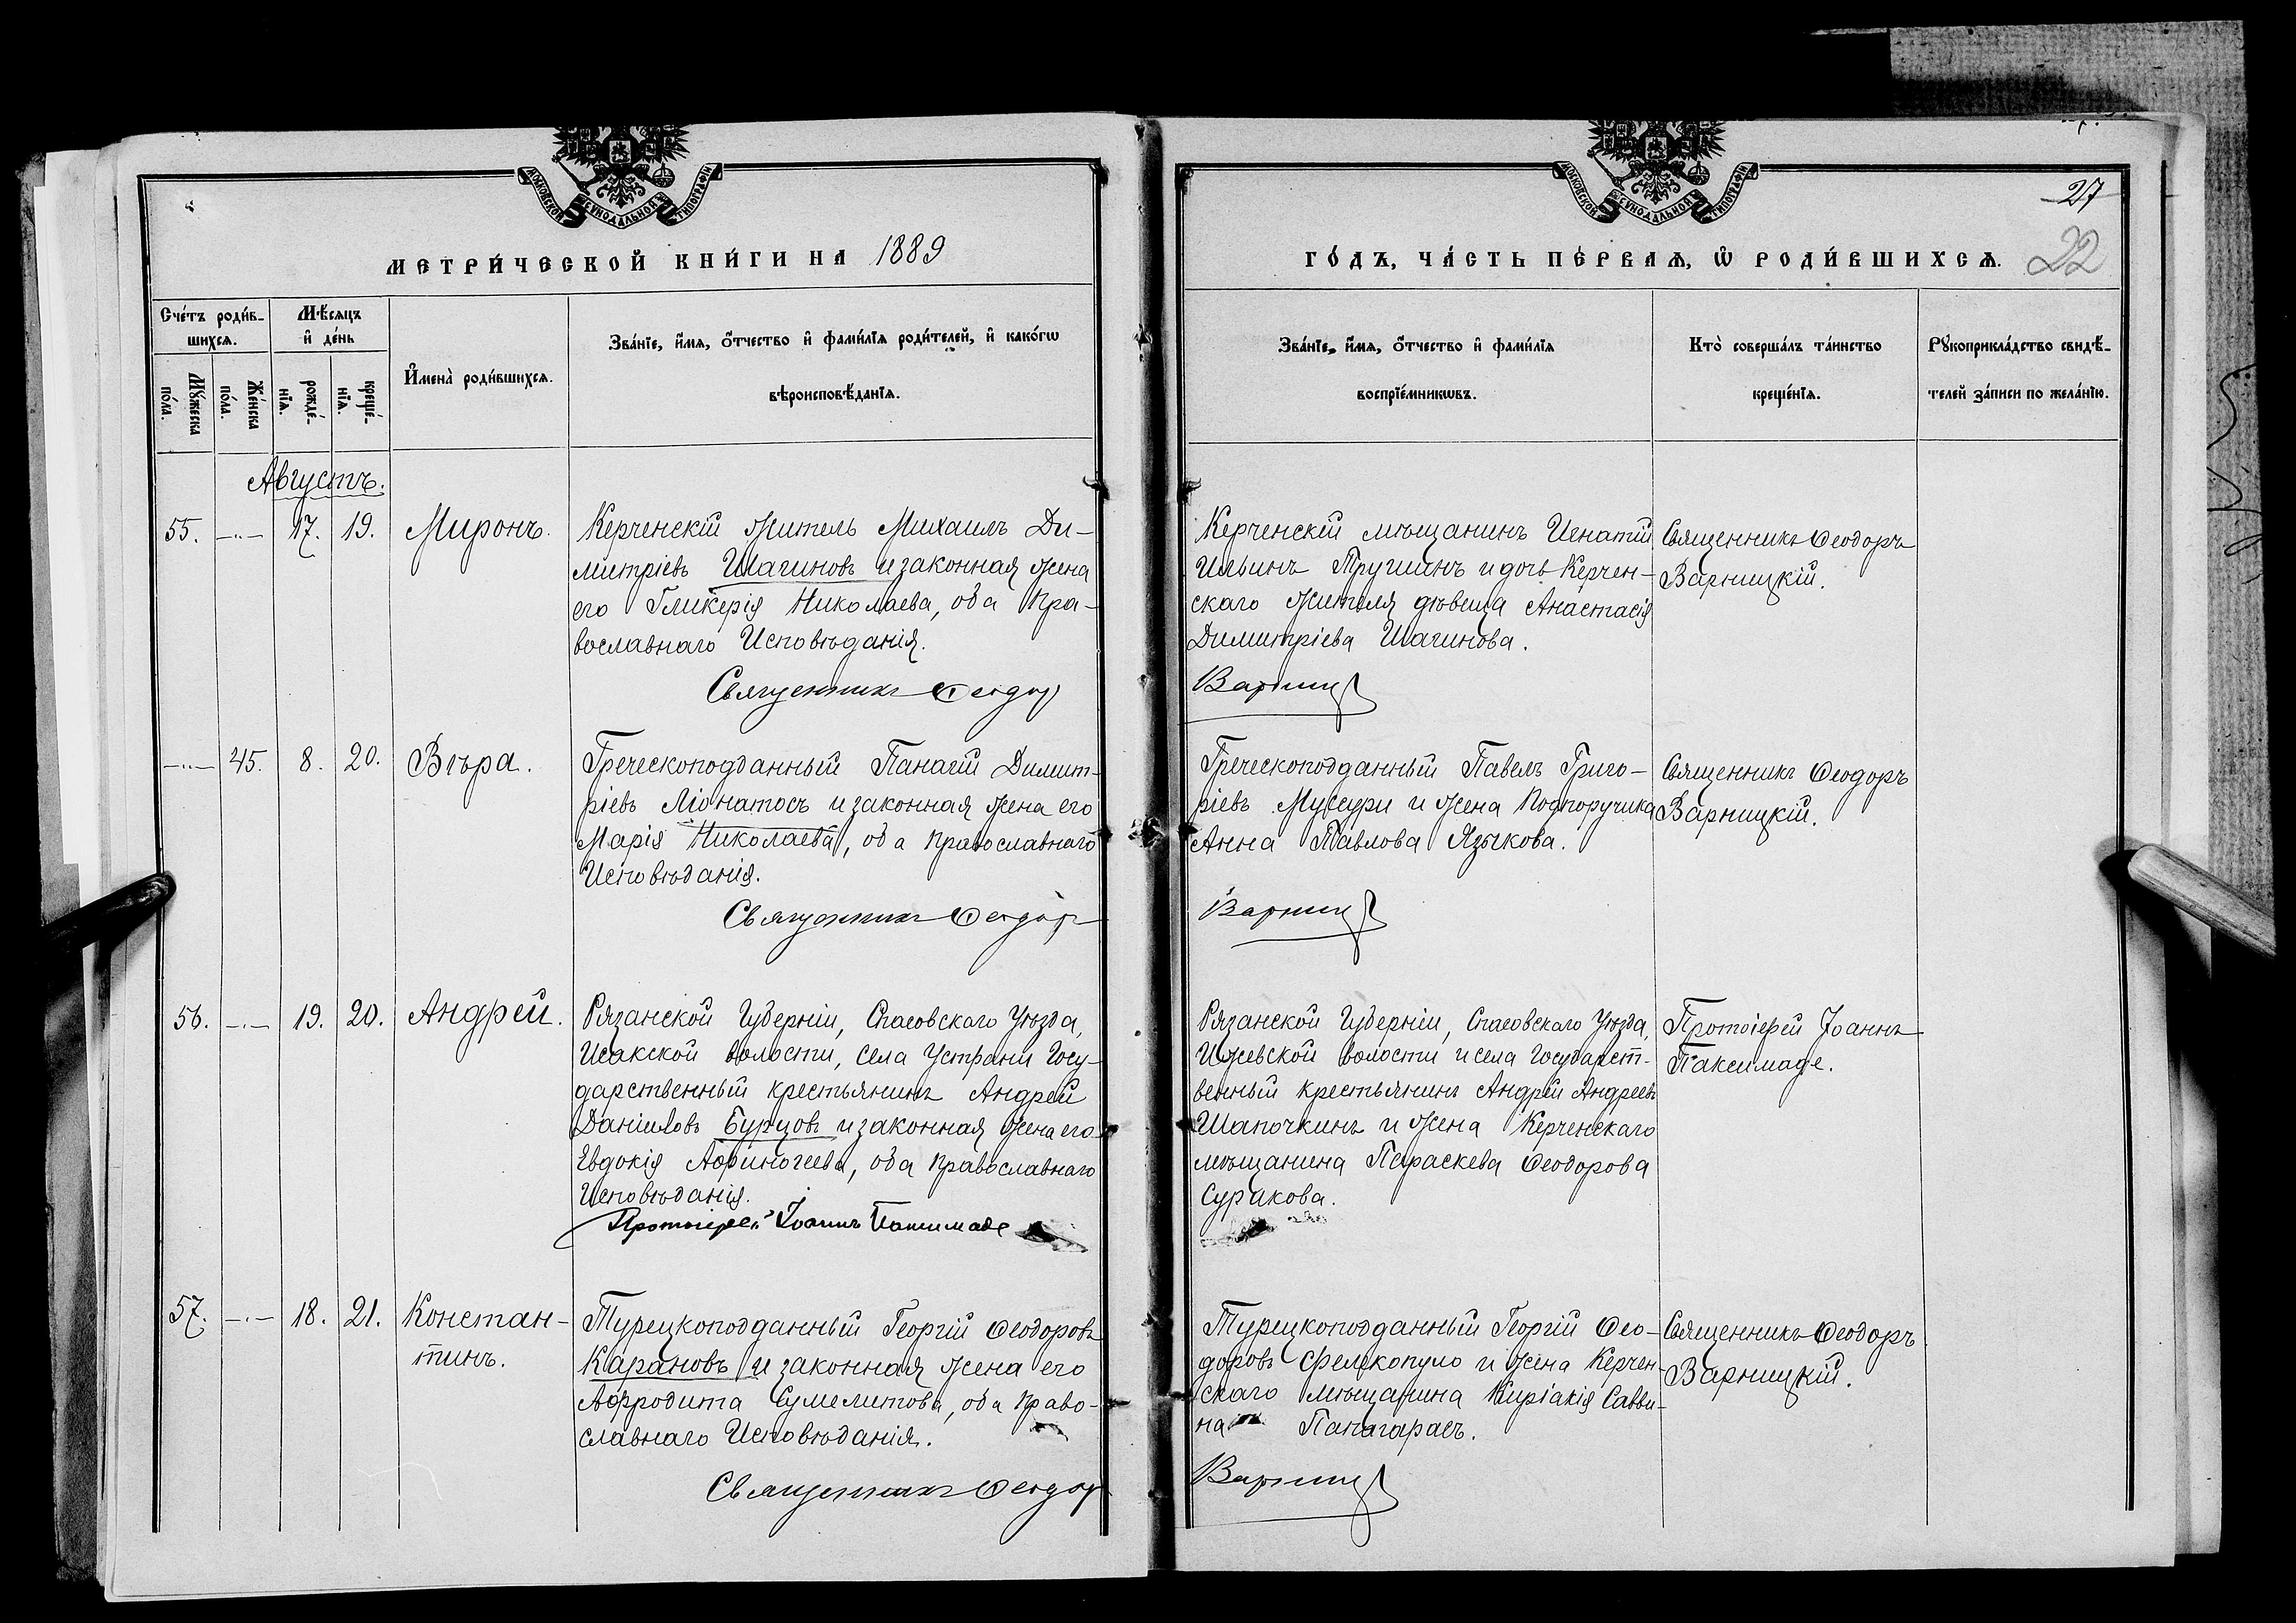 МОСКОВСКОЙ СУНОДАЛЬНОЙ ТИПОГРАФІИ
МЕТРИ́ЧЕСКОЙ КНИ́ГИ НА 1889
Сче́тъ роди́в-
шихсѧ.
Мѣ́сѧцъ
и҆ де́нь
Мꙋ́жеска
по́ла.
Же́нска
по́ла.
рожде́-
нїѧ.
креще́-
нїѧ.
И҆мена̀ роди́вшихсѧ.
Зва́нїе, и҆́мѧ, ѻ҆́тчество и҆ фами́лїѧ роди́телей, и҆ како́гѡ
вѣроисповѣ́данїѧ.
Августъ.
55. —"— 17. 19. Миронъ.
Керченскій житель Михаилъ Ди-
митріевъ Шагиновъ и законная жена
его Гликерія Николаева, оба Пра-
вославнаго Исповѣданія.
Священникъ Ѳеодор
—"— 45. 8. 20. Вѣра.
Греческоподданный Панагій Димит-
ріевъ Ліонатосъ и законная жена его
Марія Николаева, оба Православнаго
Исповѣданія.
Священникъ Ѳеодоръ
56. —"— 19. 20. Андрей.
Рязанской Губерніи, Спасовскаго Уѣзда,
Исакской волости, села Устрани Госу-
дарственный крестьянинъ Андрей
Даніиловъ Бурцовъ и законная жена его
Евдокія Аѳиногеева, оба Православнаго
Исповѣданія.
Протоіерей Іоаннъ Паксимаде
57. —"— 18. 21. Констан-
тинъ.
Турецкоподданный Георгій Ѳеодоровъ
Карановъ и законная жена его
Афродита Сумелитова, оба Право-
славнаго Исповѣданія.
Священникъ Ѳеодор
МОСКОВСКОЙ СУНОДАЛЬНОЙ ТИПОГРАФІИ
27
22
ГО́ДЪ, ЧА́СТЬ ПЕ́РВАѦ, Ѡ҆ РОДИ́ВШИХСѦ.
Зва́нїе, и҆́мѧ, ѻ҆́тчество и҆ фами́лїѧ
воспрїе́мникѡвъ.
Кто̀ соверша́лъ та́инство
креще́нїѧ.
Рꙋкоприкла́дство свидѣ́-
телей за́писи по жела́нїю.
Керченскій мѣщанинъ Игнатій
Ильинъ Пругшинъ и дочь Керчен-
скаго жителя дѣвица Анастасія
Димитріева Шагинова.
Варниц
Священникъ Ѳеодоръ
Варницкій.
Греческоподданный Павелъ Григо-
ріевъ Мусури и жена Подпоручика
Анна Павлова Язычкова.
Варниц
Священникъ Ѳеодоръ
Варницкій.
Рязанской Губерніи, Спасовскаго Уѣзда,
Ижевской волости и села Государст-
венный крестьянинъ Андрей Андреевъ
Шапочкинъ и жена Керченскаго
мѣщанина Параскева Ѳеодорова
Суракова.
Протоіерей Іоаннъ
Паксимаде.
Турецкоподданный Георгій Ѳео-
доровъ Фелекопуло и жена Керчен-
скаго мѣщанина Киріакія Савви-
на Панагарасъ.
Варниц
Священникъ Ѳеодоръ
Варницкій.